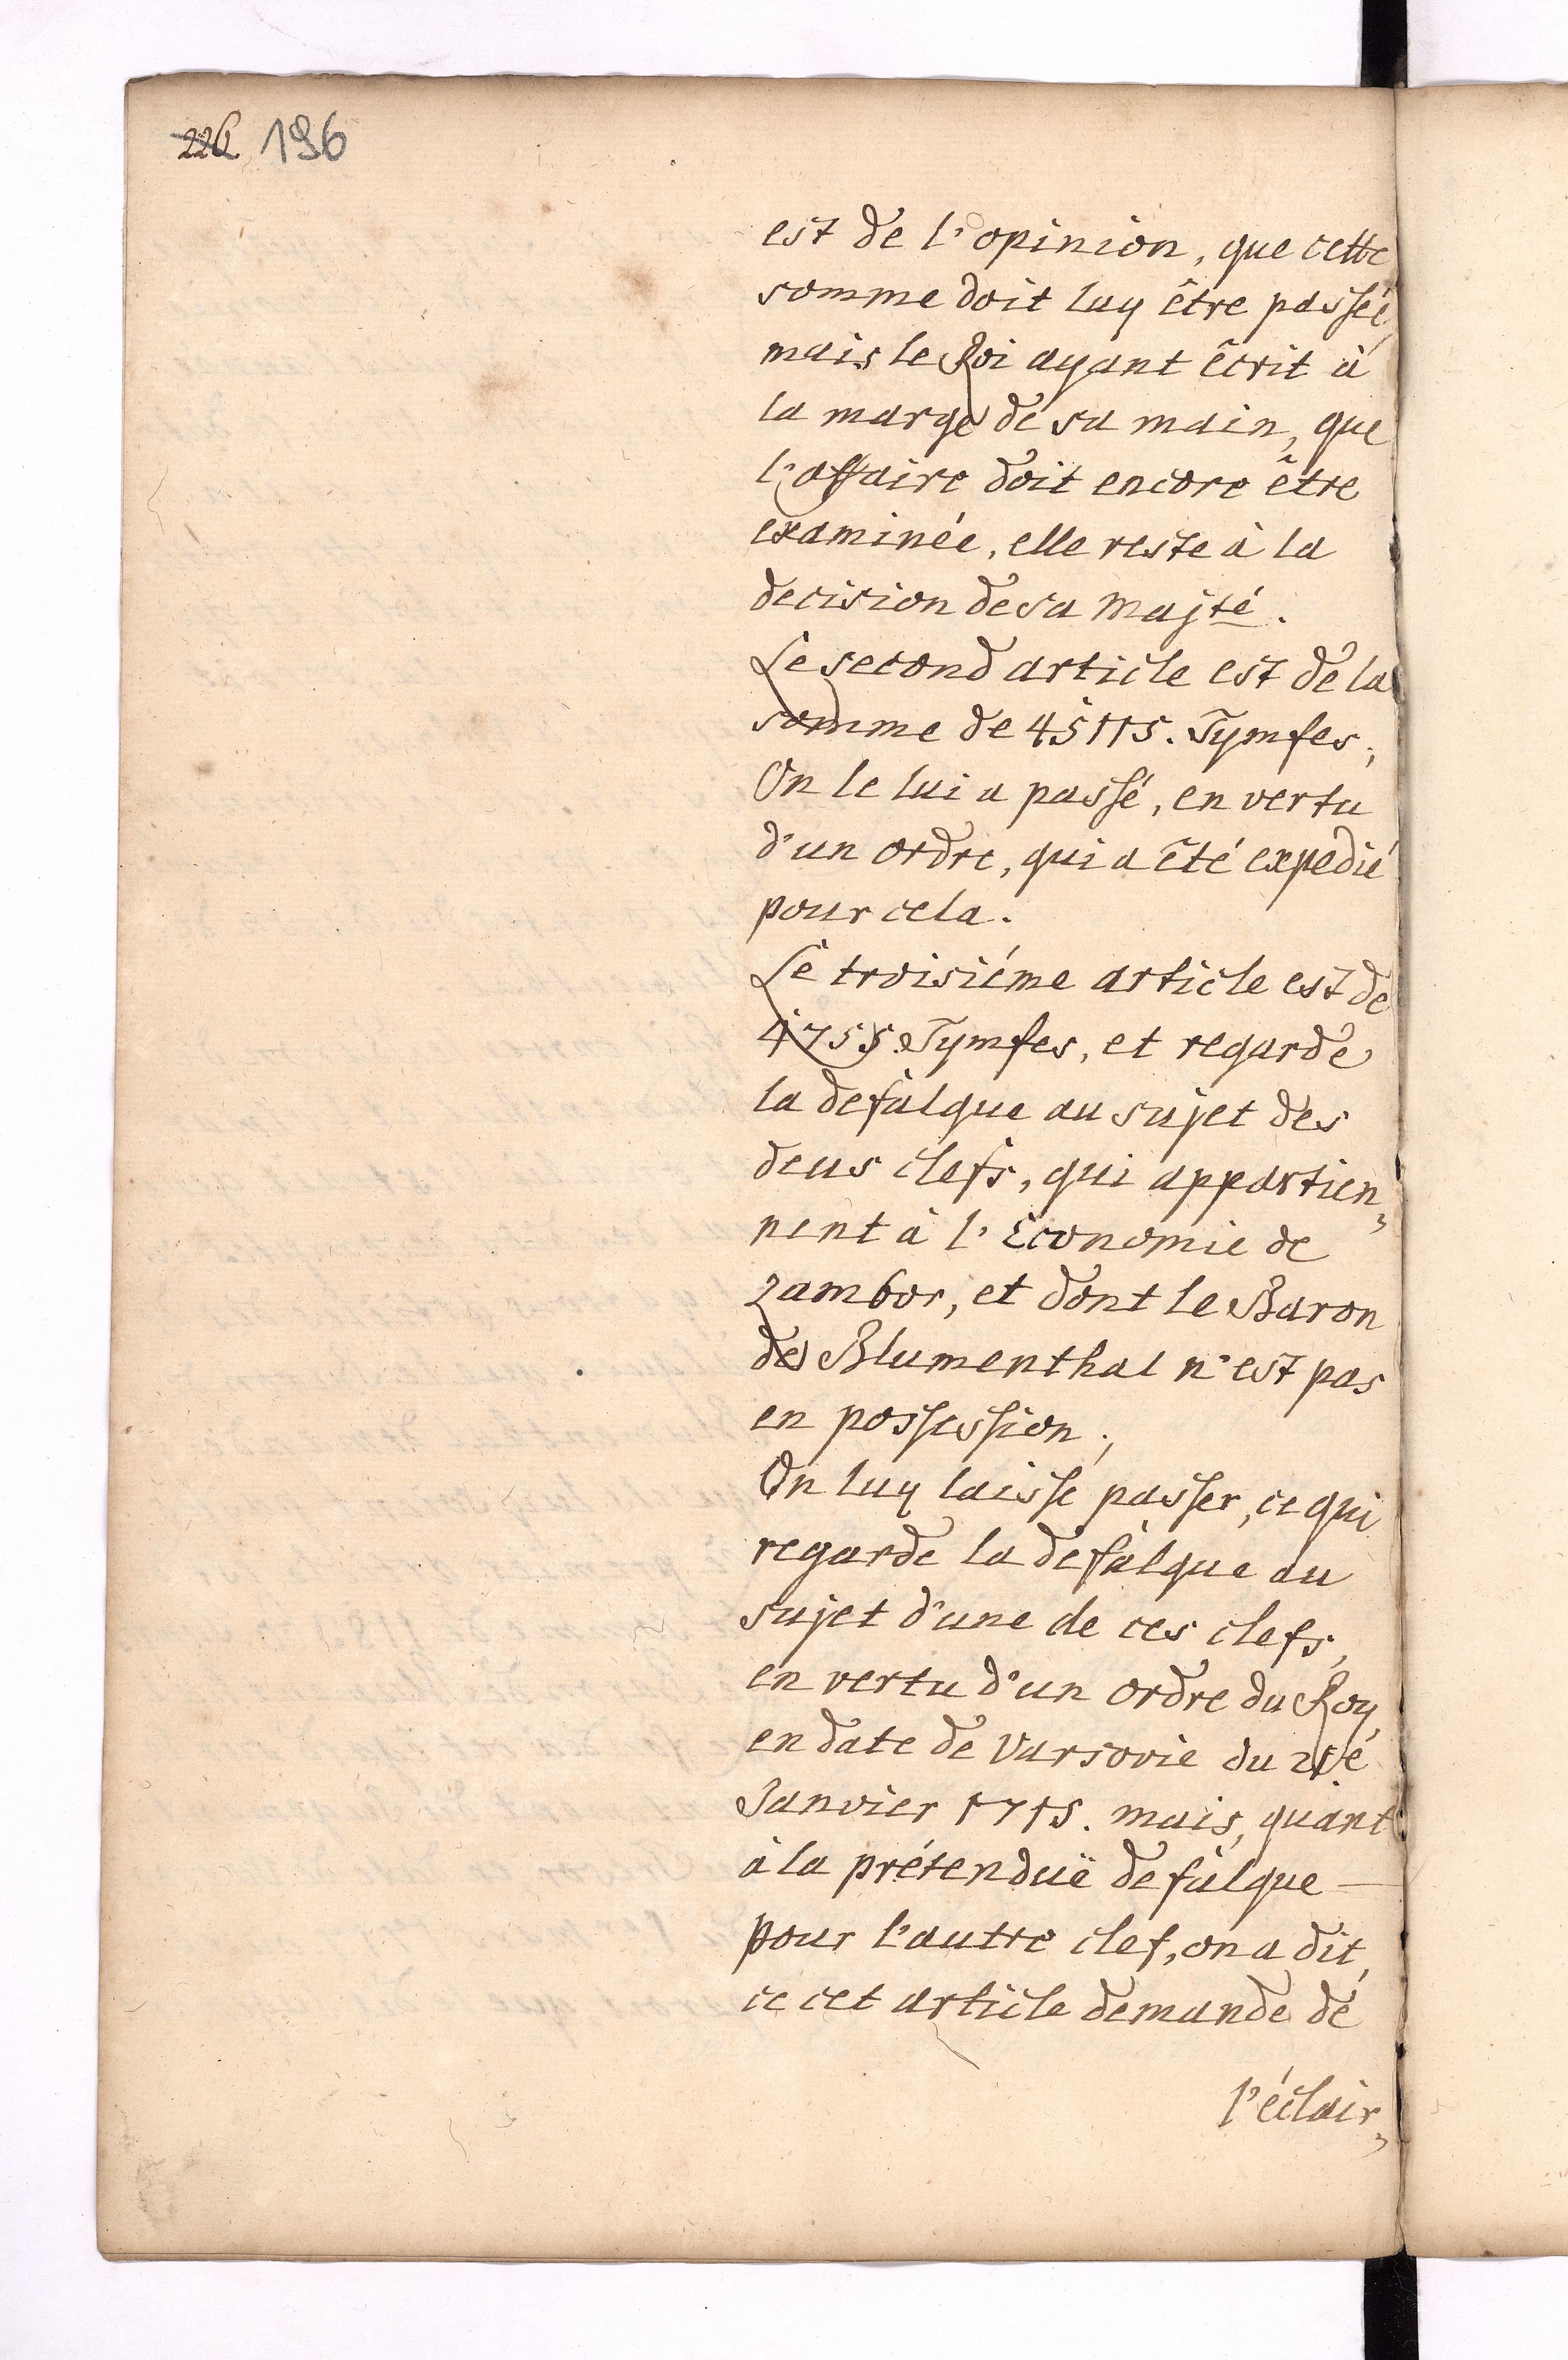 226 196
est de l'opinion, que cette
somme doit luy être passée,
mais le Roi ayant êcrit à
la marge de sa main, que
l'affaire doit encore être
examinée, elle reste à la
decision de sa Majté.
Le second article est de la
somme de 45115. Tymfes;
On le lui a passé, en vertu
d'un ordre, qui a êté expedié
pour cela.
Le troisiéme article est de
4755. Tymfes, et regarde
la defalque au sujet des
deus clefs, qui appartien„
nent à l'Economie de
Zambor, et dont le Baron
de Blumenthal n'est pas
en possession;
On luy laisse passer, ce qui
regarde la defalque au
sujet d'une de ces clefs,
en vertu d'un ordre du Roy,
en date de Varsovie du 21e
Janvier 1715. mais, quant
à la prétenduë defalque
pour l'autre clef, on a dit,
ce cet article demande de
l'éclair„